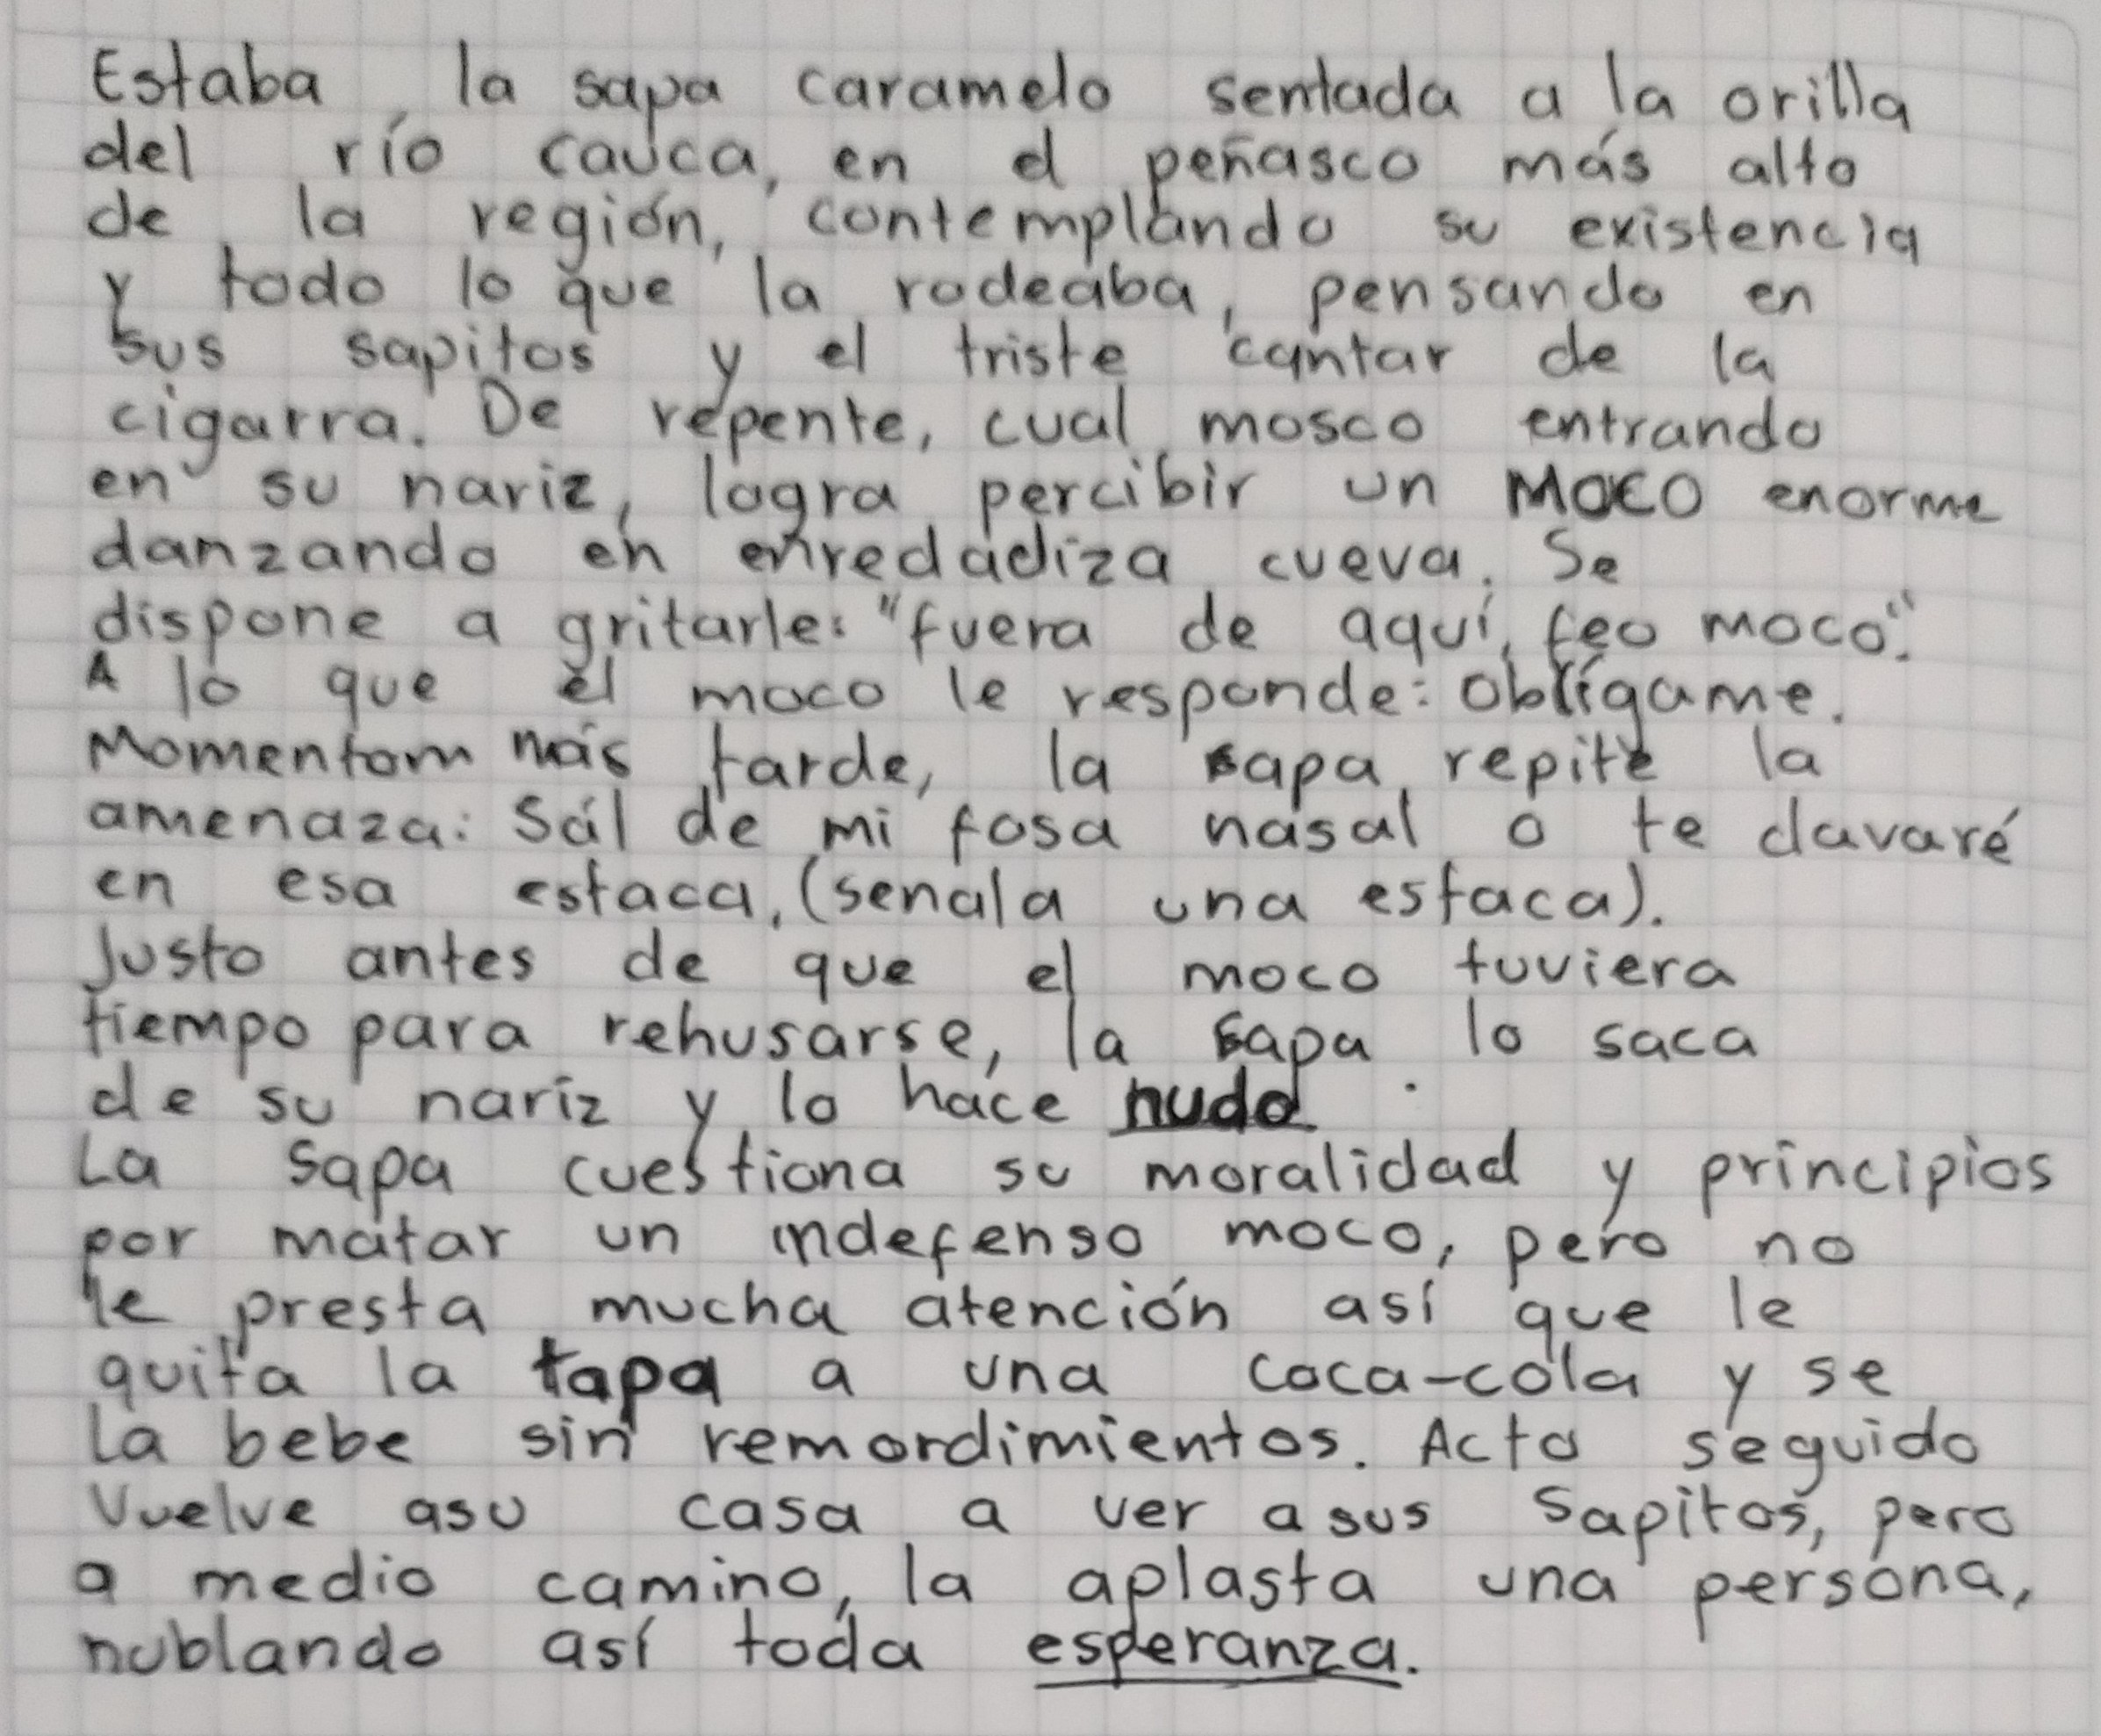 Estaba la sapa caramelo sentada a la orilla
del río cauca, en el peñasco más alto
de la región, contemplando su existencia
y todo lo que la rodeaba, pensando en
sus sapitos y el triste cantar de la
cigarra. De repente, cual mosco entrando
en su nariz, logra percibir un MOCO enorme
danzando en enredadiza cueva. Se
dispone a gritarle: "fuera de aquí, feo moco".
A lo que el moco le responde: Oblígame.
Momentom más tarde, la sapa repite la
amenaza: Sál de mi fosa nasal o te clavaré
en esa estaca, (senala una estaca).
Justo antes de que el moco tuviera
tiempo para rehusarse, la sapa lo saca
de su nariz y lo hace nudo.
La sapa cuestiona su moralidad y principios
por matar un indefenso moco, pero no
le presta mucha atención así que le
quita la tapa a una coca-cola y se
la bebe sin remordimientos. Acto seguido
Vuelve asu casa a ver asus sapitos, pero
a medio camino, la aplasta una persona,
nublando así toda esperanza.